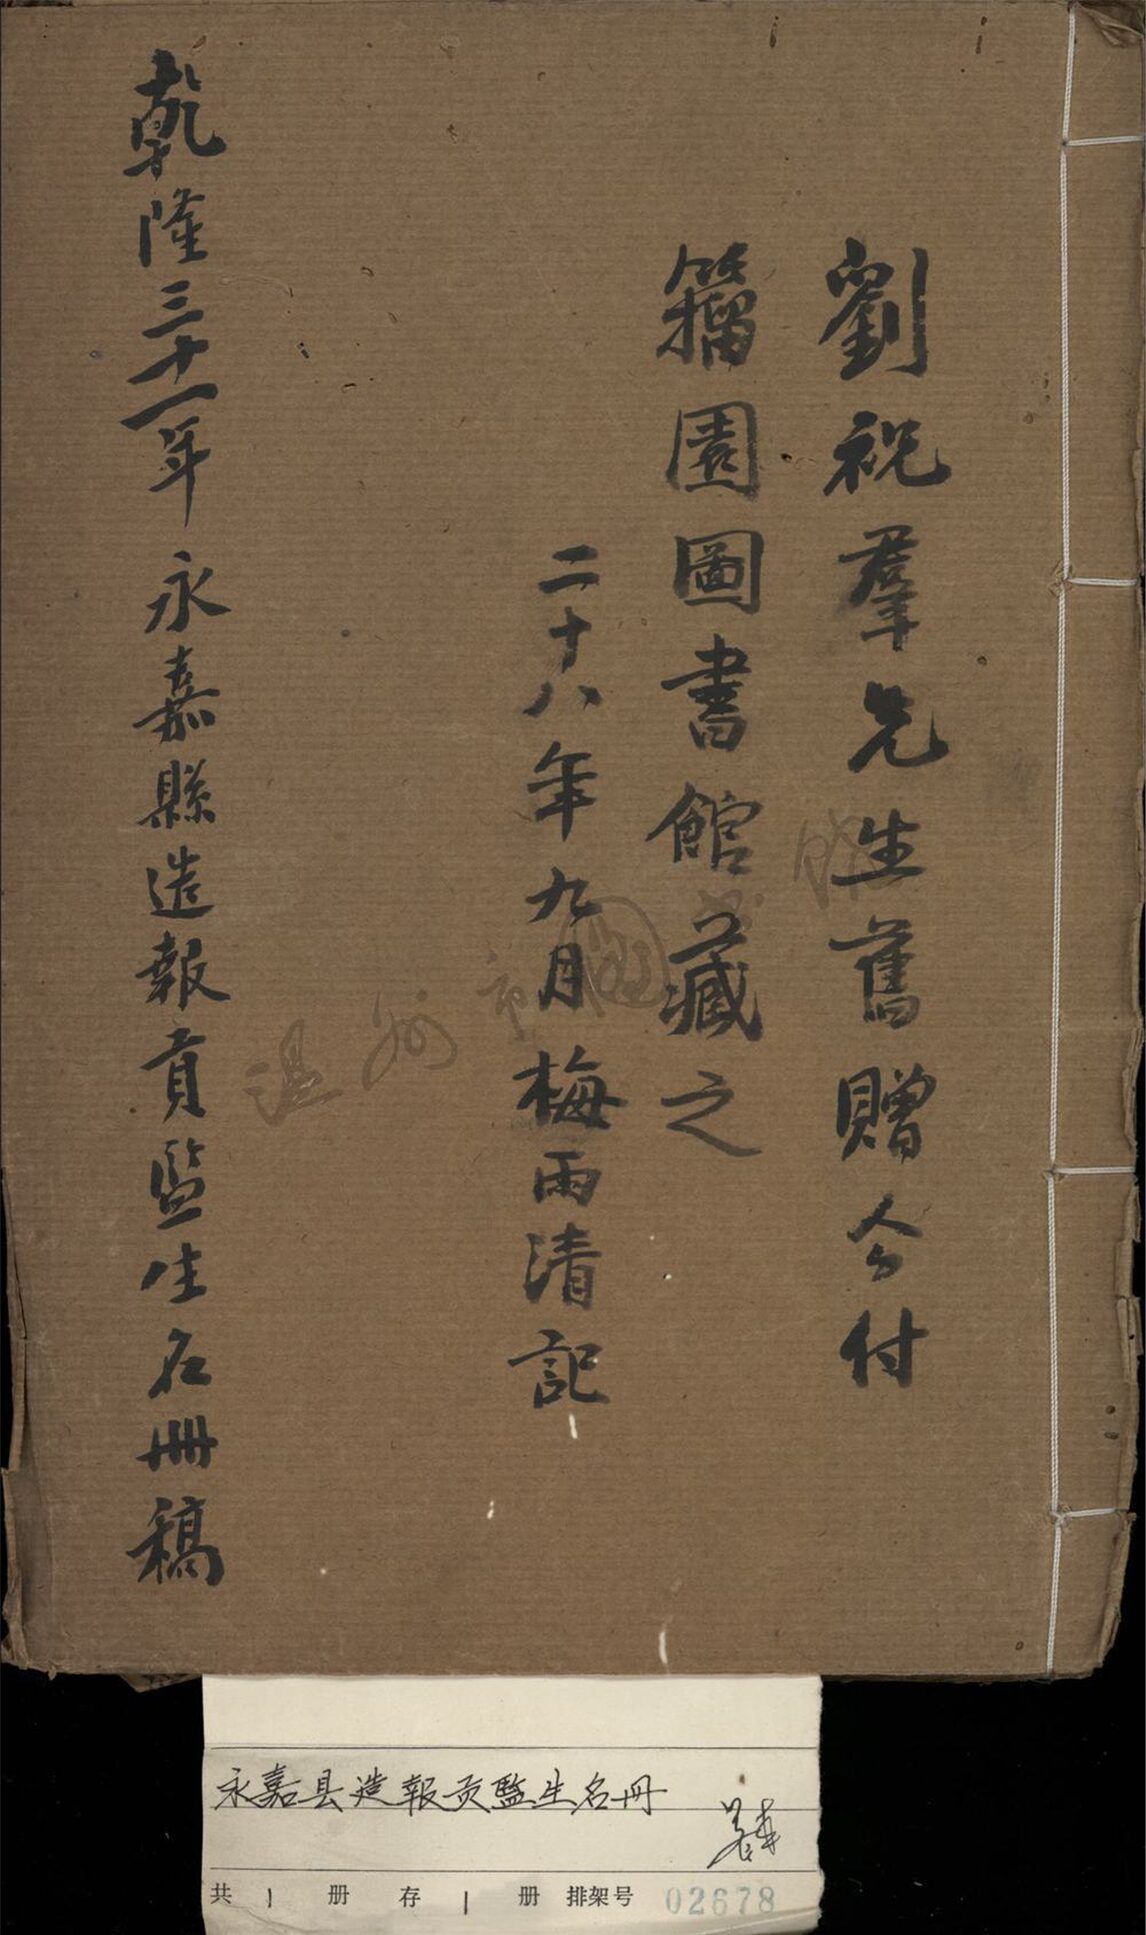 劉祝羣先生舊贈今付
籀園圖書館藏之
二十八年九月梅雨清記
乾隆三十一年永嘉縣造報貢監生名冊稿
温州市圖
永嘉县造報贡監生名冊
共 1 册 存 1 册 排架号 02678